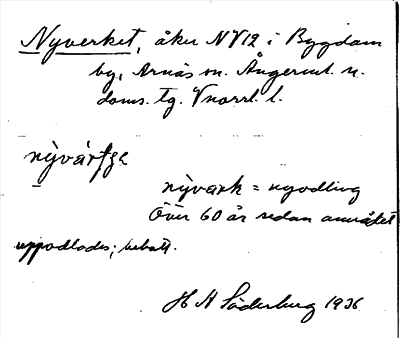 Nyverket, åker NV12 i Bygdom
by, Arnäs sn. Ångerml. n.
doms. tg. Vnorrl. l.
nỳvärʈʂe
nỳvark = nyodling
Över 60 år sedan området
uppodlades; berätt.
H A Söderberg 1936